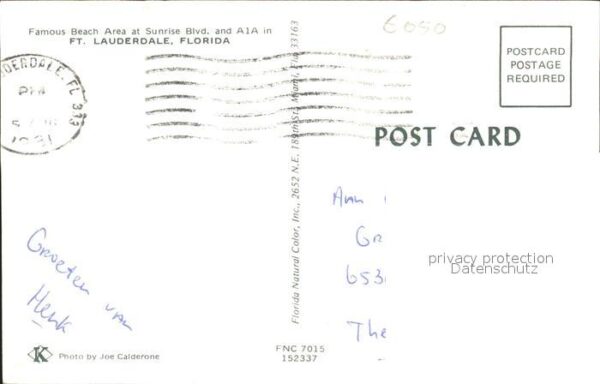 Famous Beach Area at Sunrise Blvd. and A1A in
FT. LAUDERDALE, FLORIDA
6050
POSTCARD
POSTAGE
REQUIRED
DERDALE, FL 333
PM
1981
POST CARD
Florida Natural Color, Inc., 2652 N.E. 189th St., Miami, Fla. 33163
Groeten van
Henk
Gr
653
The
privacy protection
Datenschutz
K
Photo by Joe Calderone
FNC 7015
152337